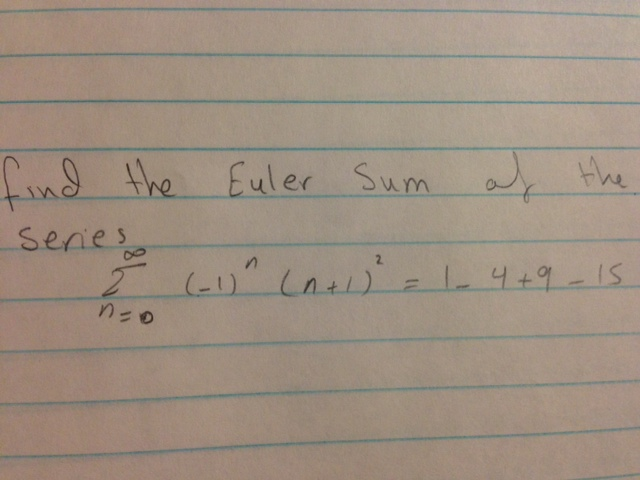 find the Euler Sum of the
series
∞
Σ (-1)^n (n+1)^2 = 1 - 4 + 9 - 15
n=0